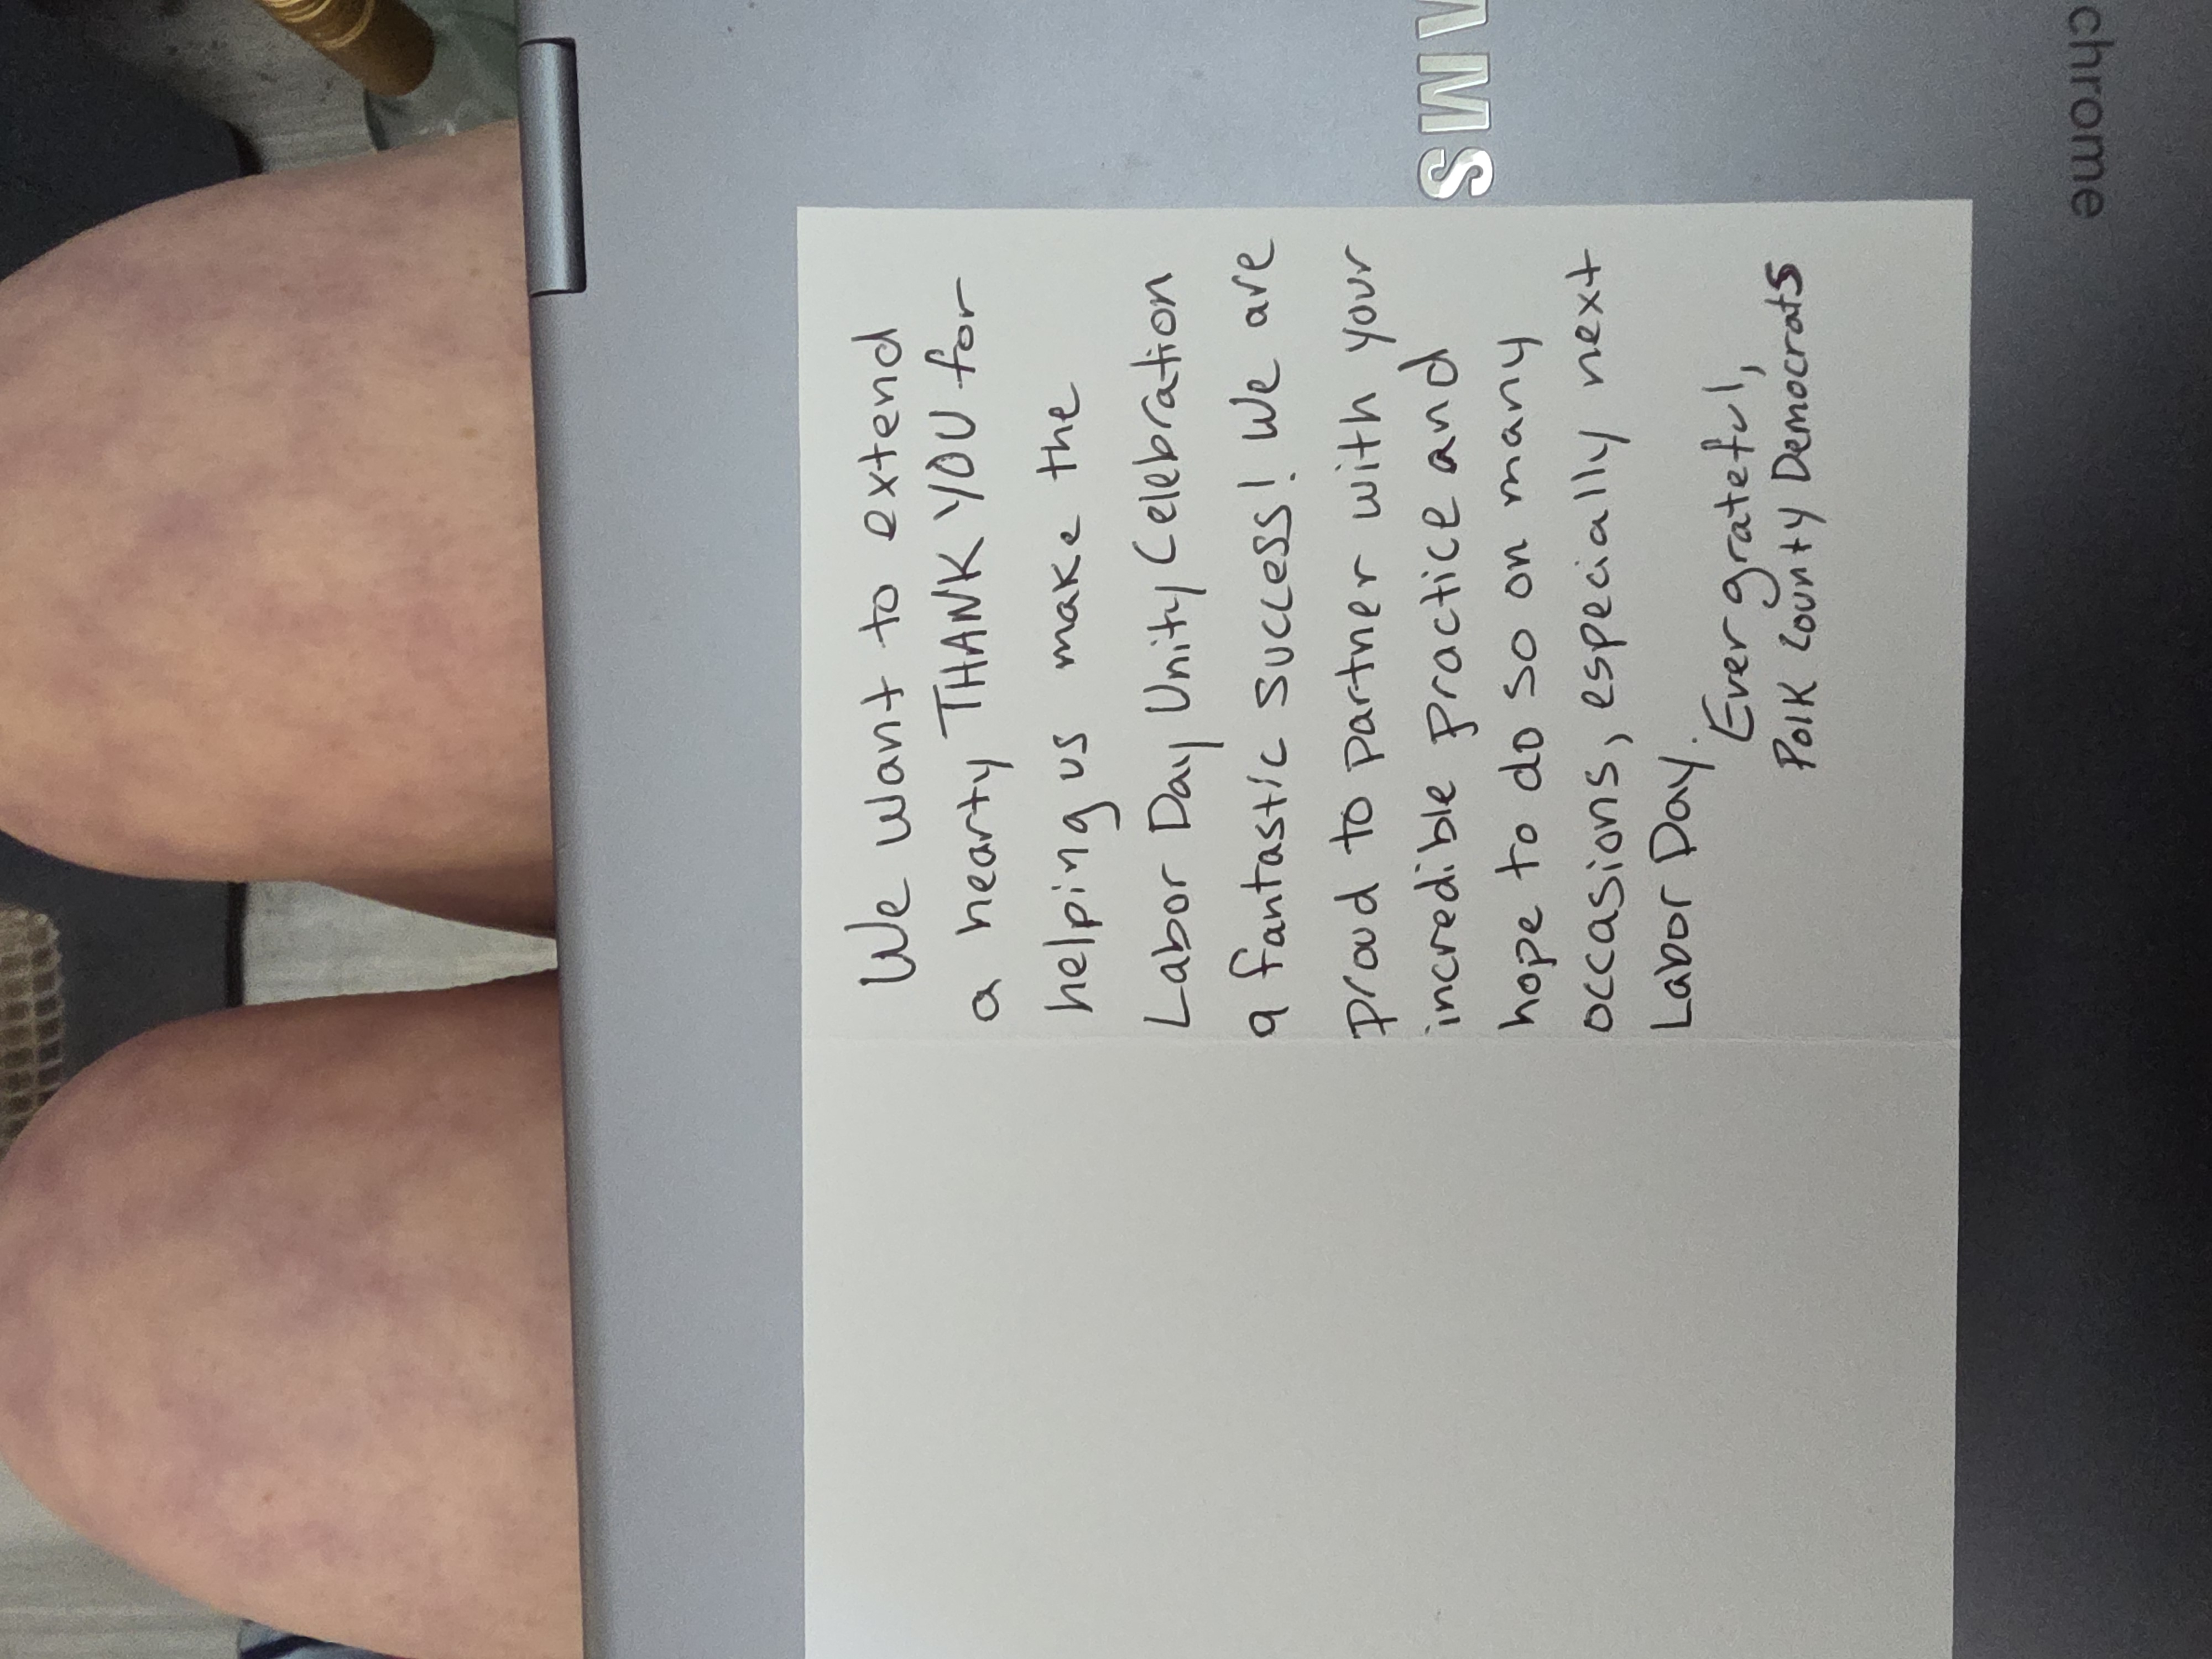 We want to extend
a hearty THANK YOU for
helping us make the
Labor Day Unity Celebration
a fantastic success! We are
proud to partner with your
incredible practice and
hope to do so on many
occasions, especially next
Labor Day.
Ever grateful,
Polk County Democrats
SAMS
chrome